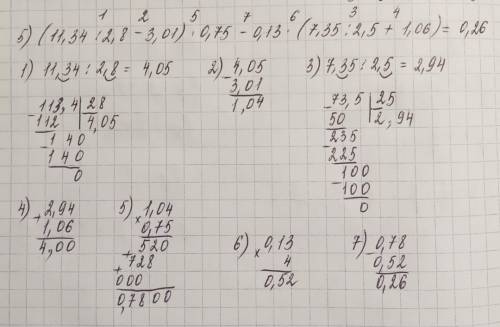 1 2 5 7 6 3 4
5) (11,34 : 2,8 - 3,01) · 0,75 - 0,13 · (7,35 : 2,5 + 1,06) = 0,26
1) 11,34 : 2,8 = 4,05
113,4 | 28
- 112 | 4,05
- 140
140
0
2) - 4,05
3,01
1,04
3) 7,35 : 2,5 = 2,94
- 73,5 | 25
50 | 2,94
- 235
225
- 100
100
0
4) + 2,94
1,06
4,00
5) × 1,04
0,75
+ 520
+ 728
000
0,7800
6) × 0,13
4
0,52
7) - 0,78
0,52
0,26